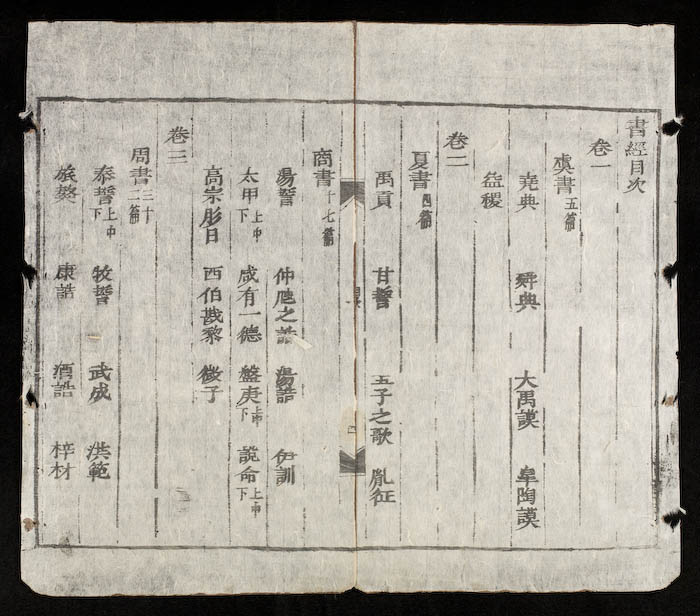 書經目次
卷一
虞書五篇
堯典 舜典 大禹謨 皐陶謨
益稷
卷二
夏書四篇
禹貢 甘誓 五子之歌 胤征
商書十七篇
湯誓 仲虺之誥 湯誥 伊訓
太甲上中下 咸有一德 盤庚上中下 說命上中下
高宗肜日 西伯戡黎 微子
卷三
周書三十二篇
泰誓上中下 牧誓 武成 洪範
旅獒 康誥 酒誥 梓材